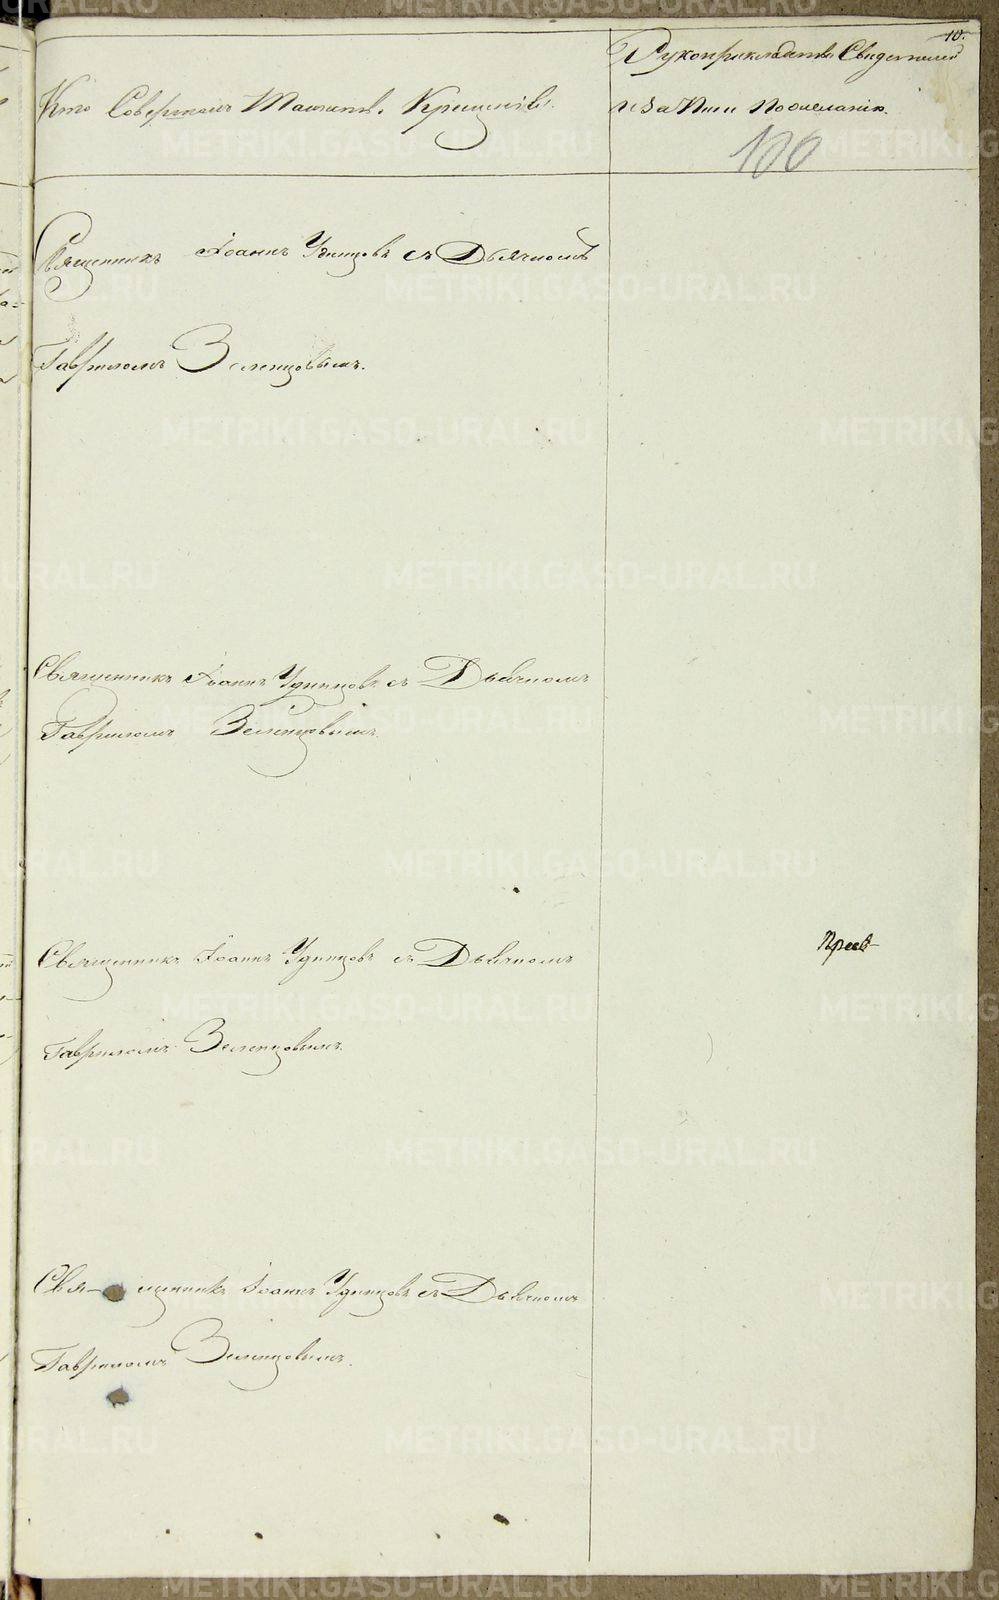 10.
Кто Совершалъ Таинство Крещенія.
Рукоприкладство Свидетелей
и За Писи По желанію.
100
Священникъ Іоаннъ Удинцовъ съ Дьячкомъ
Гавриломъ Зеленцовымъ.
Священникъ Іоаннъ Удинцовъ съ Дьячкомъ
Гавриломъ Зеленцовымъ.
Священникъ Іоаннъ Удинцовъ съ Дьячкомъ
Гавриломъ Зеленцовымъ.
Свя- щенникъ Іоаннъ Удинцовъ съ Дьячкомъ
Гавриломъ Зеленцовымъ.
METRIKI.GASO-URAL.RU